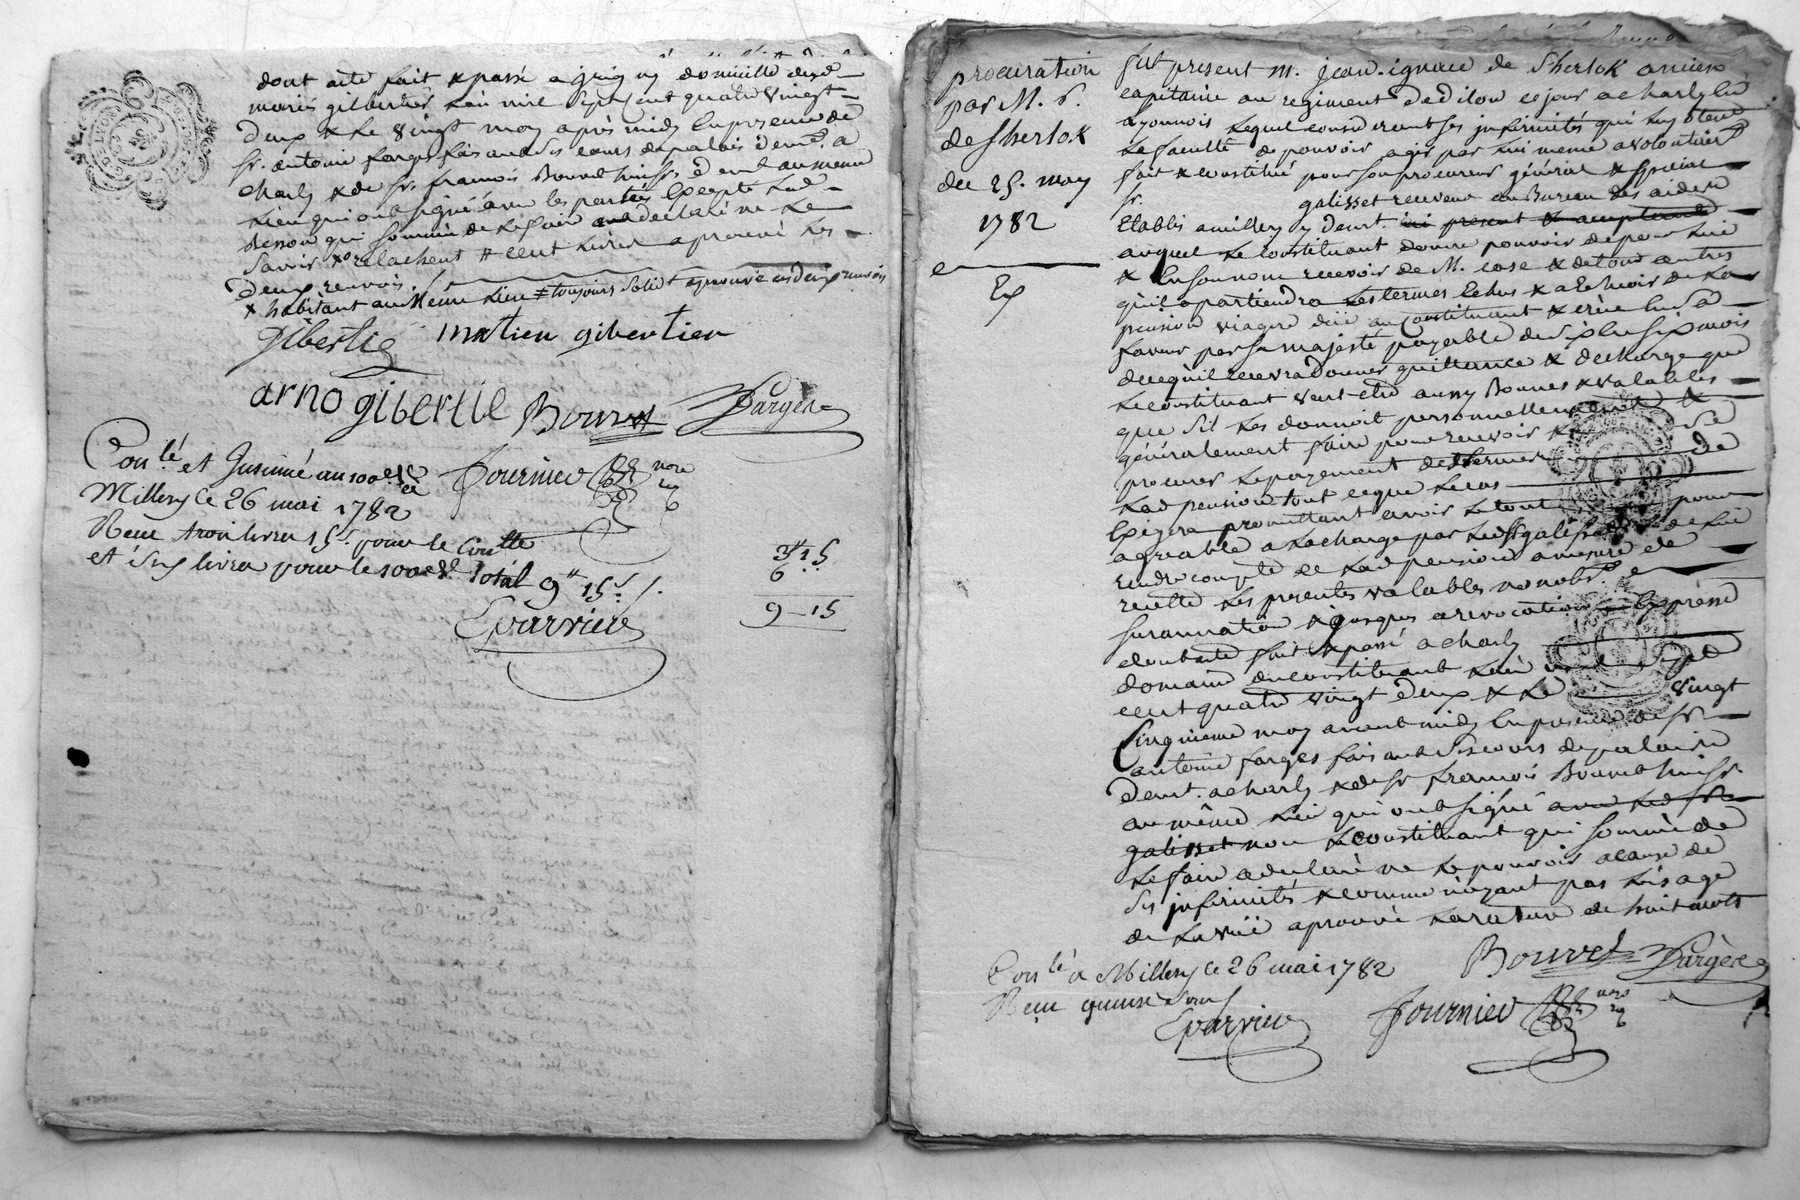 dont acte fait & passé a grigny domicille desd.
mariés gilbertier l'an mil sept cent quatre vingt
deux & le vingt may après midy en presence de
sr. antoine farges faisant ses cours de palais demt. a
charly & de sr. francois Bouvet huissr. demt. au meme
lieu qui ont signé avec les parties Excepté lad.
de le faire a declaré ne le
savoir
deux renvois.
x habitant au meme lieu # toujours solid. approuvé ces deux renvois
Gibertié matieu gibertier
arno gibertié Bouvet Dargère
Conlé et Insinué au 100e. den.
Millery le 26 mai 1782
Reçu trois livres 15s. pour le Conlle
et six livres pour le 100e. d. total 9# 15s.
Fournier nore
3# 15
6
9 - 15
Evarriere
procuration
par M. r.
de Sherlok
du 25. may
1782
Ex
fut present M. jean-ignace de Sherlok ancien
capitaine au regiment de dilon sejour a charly en
Lyonnois Lequel considerant ses infirmités qui luy otent
la faculté de pouvoir agir par lui meme a volontairt.
fait & constitué pour son procureur général & special
sr. galisset receveur au Bureau des aides
Etablis a millery y demt. ici present & acceptant
auquel le constituant donne pouvoir de pour lui
& En son nom recevoir de M. case & de tous autres
qu'il apartiendra les termes Echus & a Echeoir de la
pension viagere düe au constituant & crée En sa
faveur par sa majesté payable de six En six mois
de ce qu'il recevra donner quittance & decharge que
le constituant veut etre aussy Bonnes & valables
que s'il les donnoit personnellement &
généralement faire pour recevoir & se
procurer le payement des termes de
lad pension tout ce que le cas
Exigera promettant avoir le tout pour
agreable a la charge par led. sr galisset de lui
rendre compte de lad pension a mesure de
recette les presentes valables nonobst.
surannation & jusques a revocation Expresse
dont acte fait & passé a charly
domaine du constituant l'an mil sept
cent quatre vingt deux & le vingt
Cinquieme may avant midy En presence de sr.
antoine farges faisant ses cours de palais
demt. a charly & de sr francois Bouvet huissr.
au même lieu qui ont signé avec led sr
galisset non le constituant qui sommé de
le faire a declaré ne le pouvoir a cause de
ses infirmités & comme n'ayant pas l'usage
de la vüe aprouvé la rature de huit mots
Bouvet Dargère
Conlé a Millery le 26 mai 1782
Reçu quinze sous
Evarriere Fournier nore